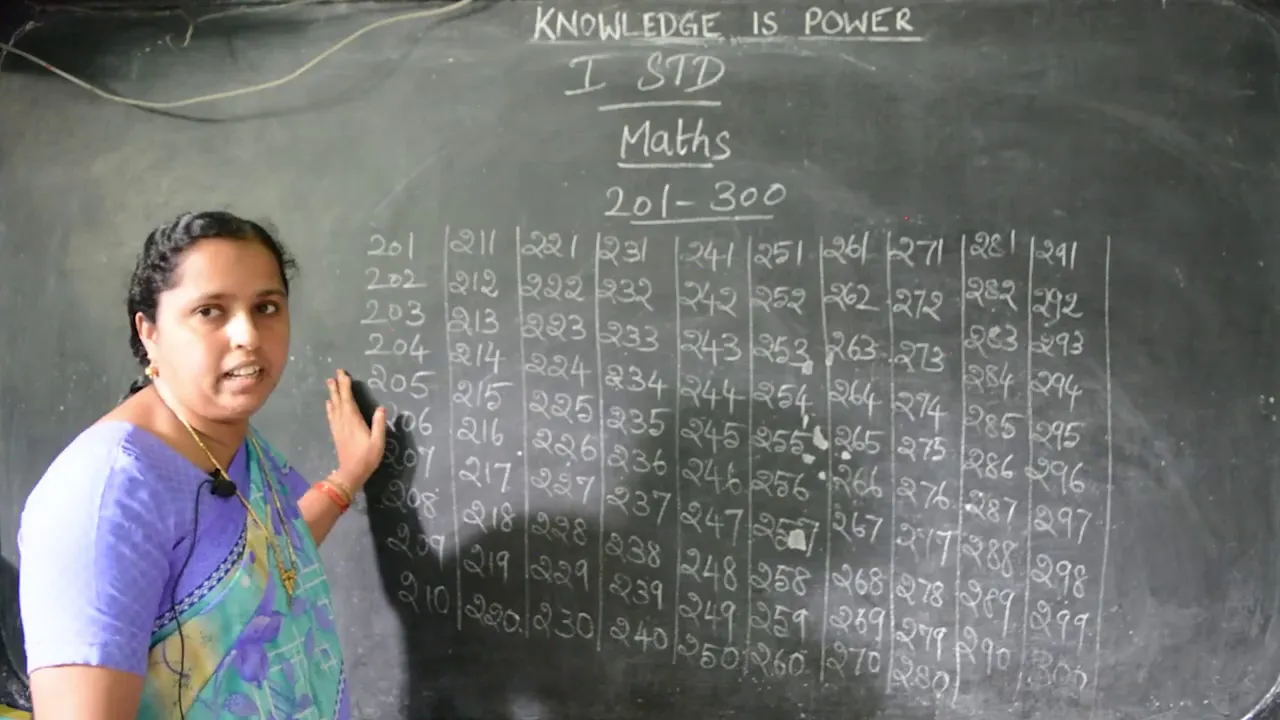 KNOWLEDGE IS POWER
I STD
Maths
201-300
201 211 221 231 241 251 261 271 281 291
202 212 222 232 242 252 262 272 282 292
203 213 223 233 243 253 263 273 283 293
204 214 224 234 244 254 264 274 284 294
205 215 225 235 245 255 265 275 285 295
206 216 226 236 246 256 266 276 286 296
207 217 227 237 247 257 267 277 287 297
208 218 228 238 248 258 268 278 288 298
209 219 229 239 249 259 269 279 289 299
210 220 230 240 250 260 270 280 290 300